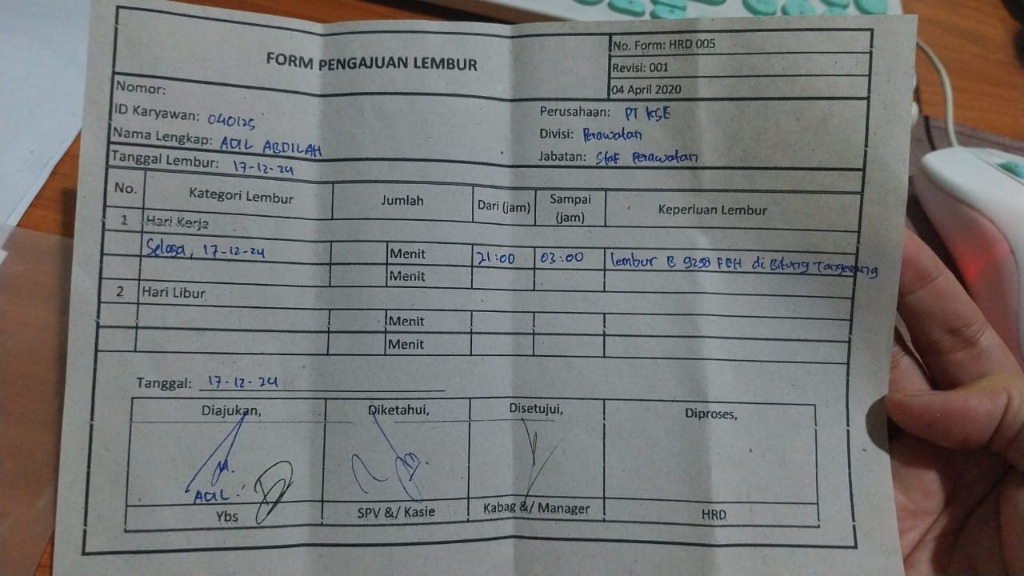 FORM PENGAJUAN LEMBUR
No. Form: HRD 005
Revisi: 001
04 April 2020
Nomor:
ID Karyawan: 040125
Nama Lengkap: ADIL ABDILAH
Tanggal Lembur: 17-12-24
Perusahaan: PT KSE
Divisi: Perawatan
Jabatan: Staf Perawatan
No. Kategori Lembur Jumlah Dari (jam) Sampai (jam) Keperluan Lembur
1 Hari Kerja
Selasa, 17-12-24 Menit 21:00 03:00 lembur B 9258 di Bitung Tangerang
Menit
2 Hari Libur
Menit
Menit
Tanggal: 17-12-24
Diajukan, Diketahui, Disetujui, Diproses,
ADIL
Ybs SPV &/ Kasie Kabag &/ Manager HRD